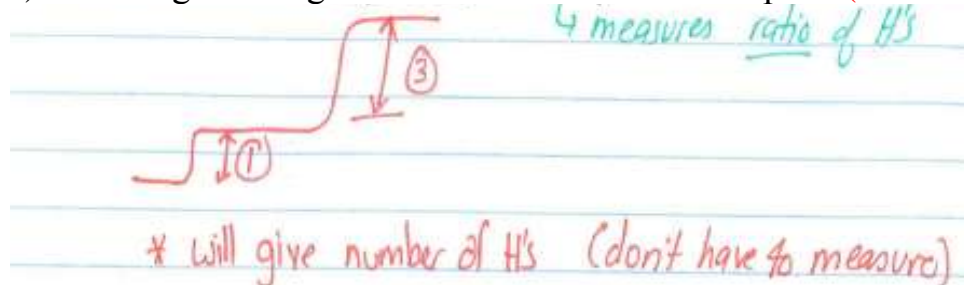 ↳ measures ratio of H's
③
①
* will give number of H's (don't have to measure)